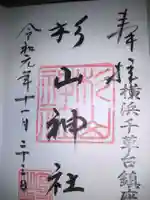 奉拝
横浜千草台鎮座
杉山神社
令和元年十一月二十三日